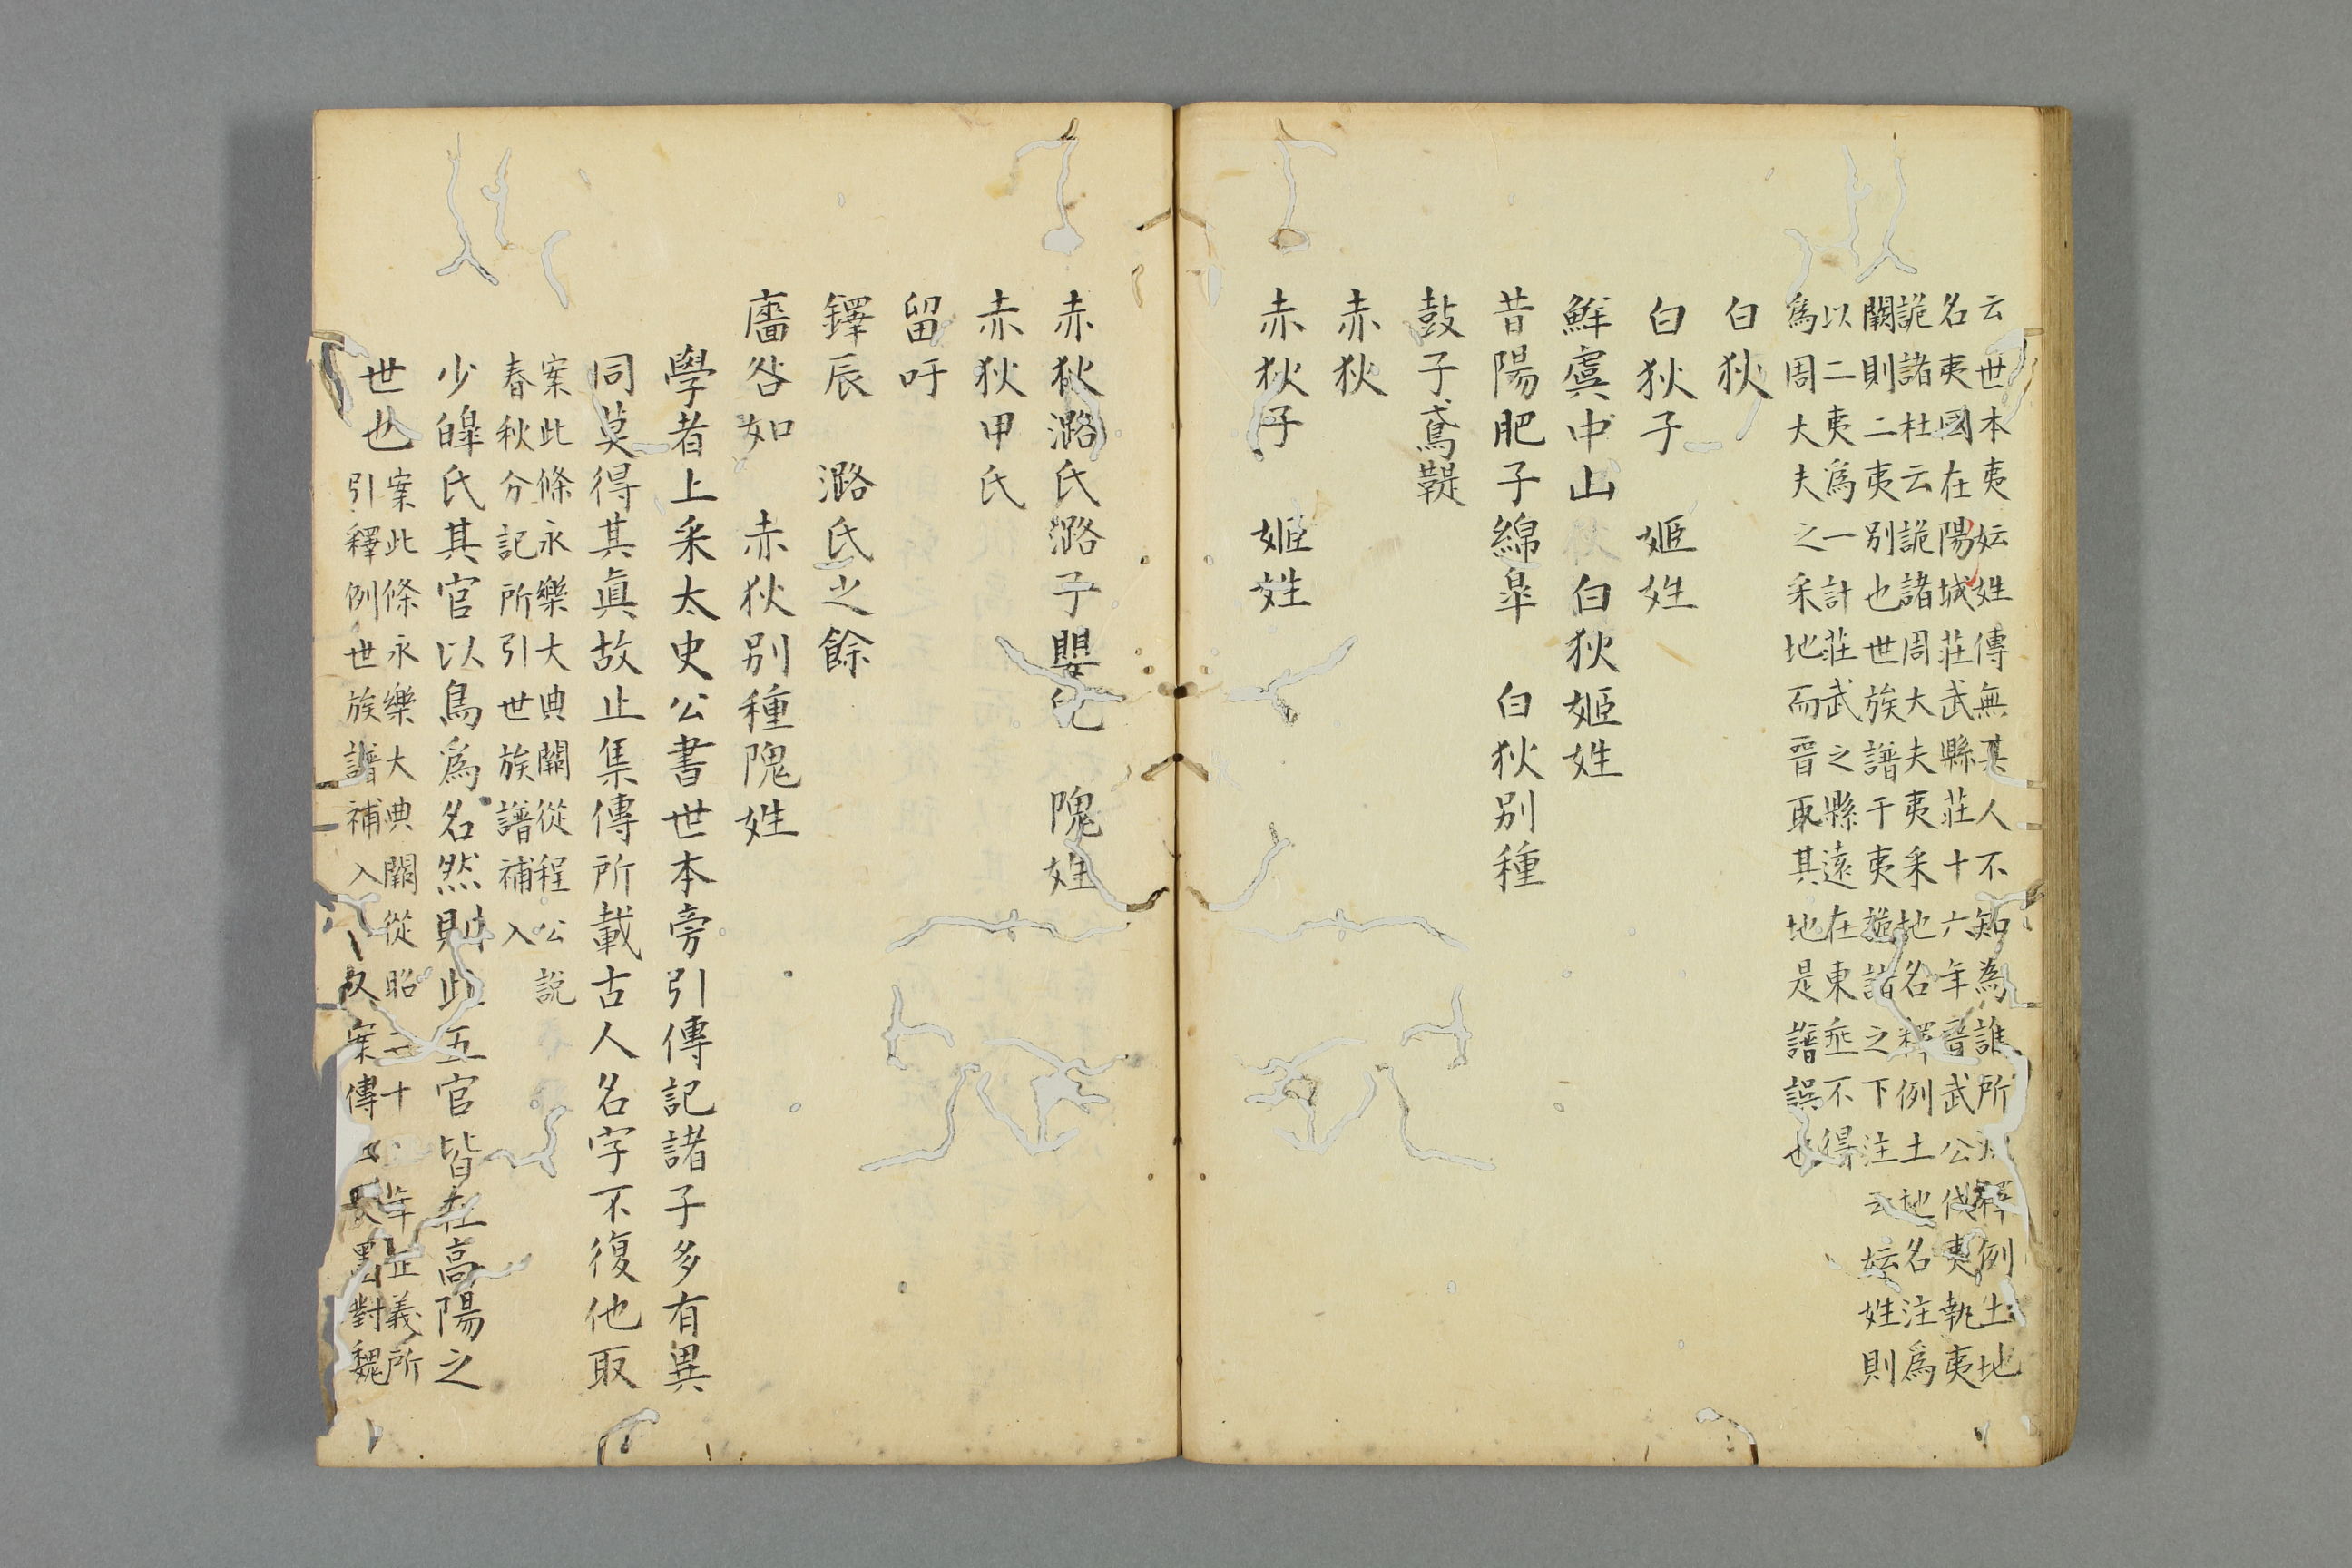 云世本夷妘姓傳無其人不知為誰所滅釋例土地
名夷國在陽城莊武縣莊十六年晉武公伐夷執夷
詭諸杜云詭諸周大夫夷采地名釋例土地名注爲
闕則二夷別也世族譜于夷詭諸之下注云妘姓則
以二夷爲一計莊武之縣遠在東垂不得
爲周大夫之采地而晉取其地是譜誤也
白狄
白狄子 姬姓
鮮虞中山 白狄姬姓
昔陽肥子綿皐 白狄别種
鼓子鳶鞮
赤狄
赤狄子 姬姓
赤狄潞氏潞子嬰兒 隗姓
赤狄甲氏
留吁
鐸辰 潞氏之餘
廧咎如 赤狄别種隗姓
學者上采太史公書世本旁引傳記諸子多有異
同莫得其眞故止集傳所載古人名字不復他取
案此條永樂大典闕從程公說
春秋分記所引世族譜補入
少皥氏其官以鳥爲名然則此五官皆在高陽之
世也
案此條永樂大典闕從昭二十 年正義所
引釋例世族譜補入 又案傳 墨對魏